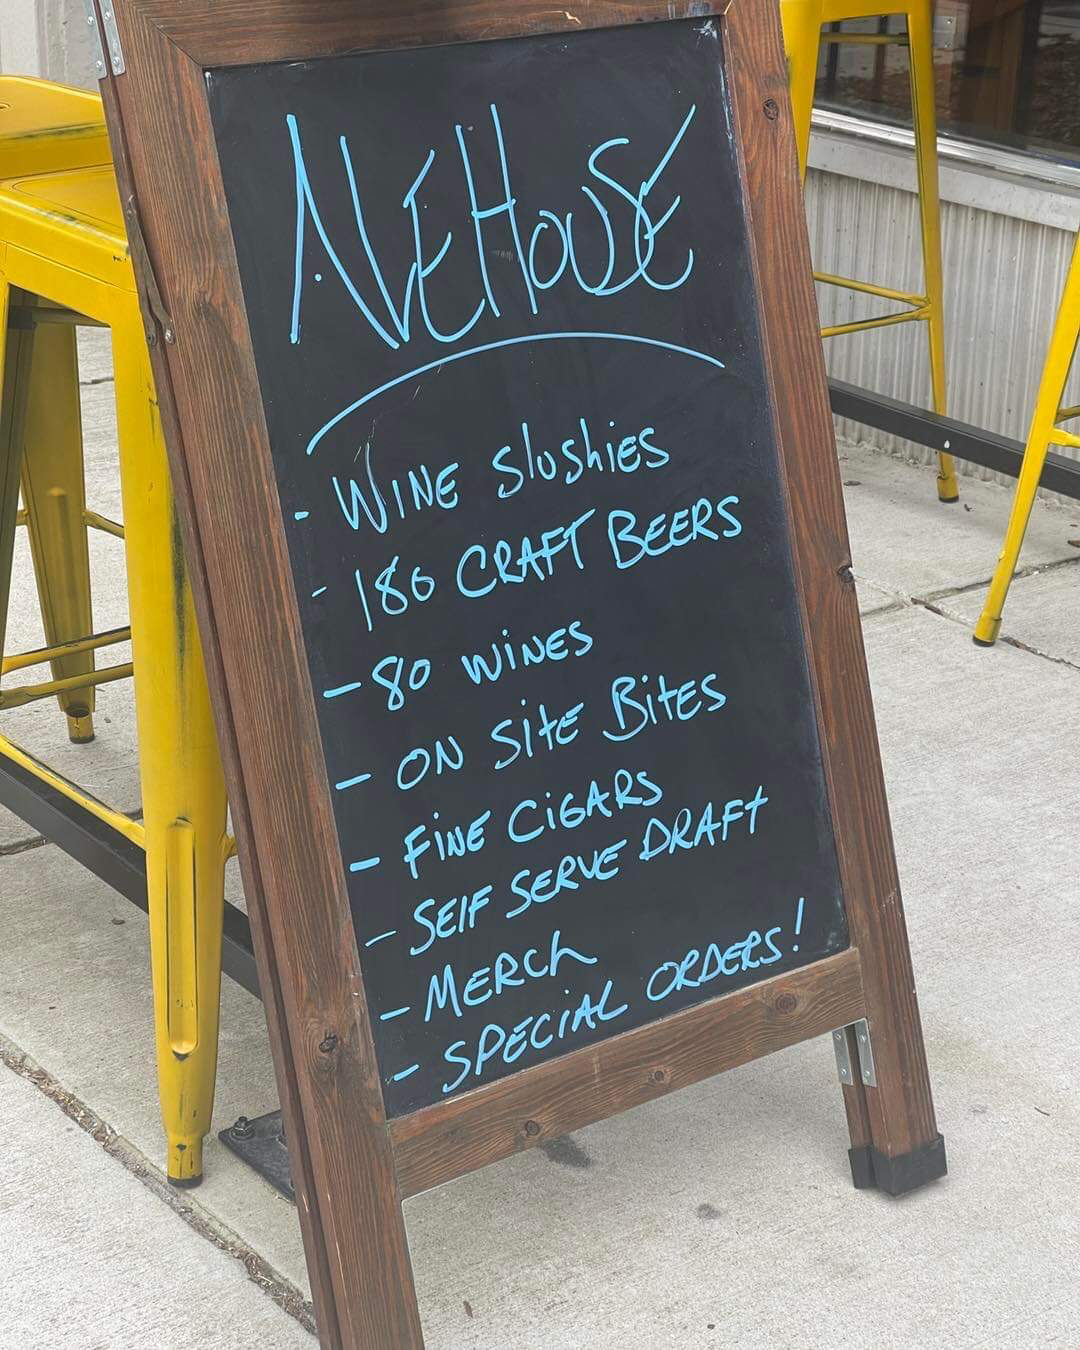 ALEHOUSE
- WINE Slushies
- 180 CRAFT BEERS
- 80 WINES
- ON SitE BitES
- FINE CiGARS
- SElF SERVE DRAFt
- MERCh
- SPECiAL ORDERS!